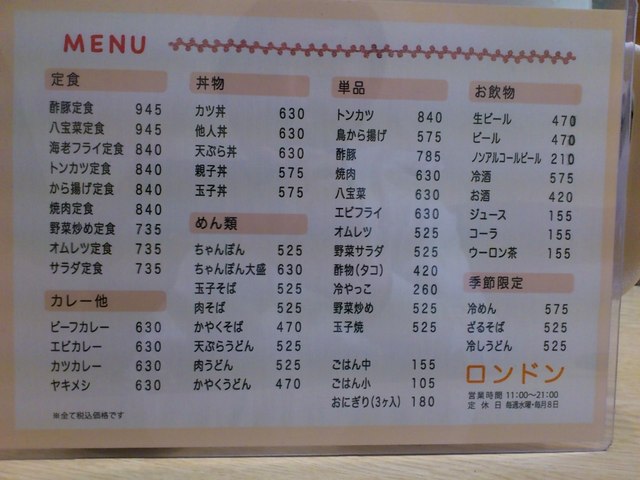 MENU
定食
酢豚定食 945
八宝菜定食 945
海老フライ定食 840
トンカツ定食 840
から揚げ定食 840
焼肉定食 840
野菜炒め定食 735
オムレツ定食 735
サラダ定食 735
カレー他
ビーフカレー 630
エビカレー 630
カツカレー 630
ヤキメシ 630
※全て税込価格です
丼物
カツ丼 630
他人丼 630
天ぷら丼 630
親子丼 575
玉子丼 575
めん類
ちゃんぽん 525
ちゃんぽん大盛 630
玉子そば 525
肉そば 525
かやくそば 470
天ぷらうどん 525
肉うどん 525
かやくうどん 470
単品
トンカツ 840
鳥から揚げ 575
酢豚 785
焼肉 630
八宝菜 630
エビフライ 630
オムレツ 525
野菜サラダ 525
酢物(タコ) 420
冷やっこ 260
野菜炒め 525
玉子焼 525
ごはん中 155
ごはん小 105
おにぎり(3ヶ入) 180
お飲物
生ビール 470
ビール 470
ノンアルコールビール 210
冷酒 575
お酒 420
ジュース 155
コーラ 155
ウーロン茶 155
季節限定
冷めん 575
ざるそば 525
冷しうどん 525
ロンドン
営業時間 11:00～21:00
定休日 毎週水曜・毎月8日